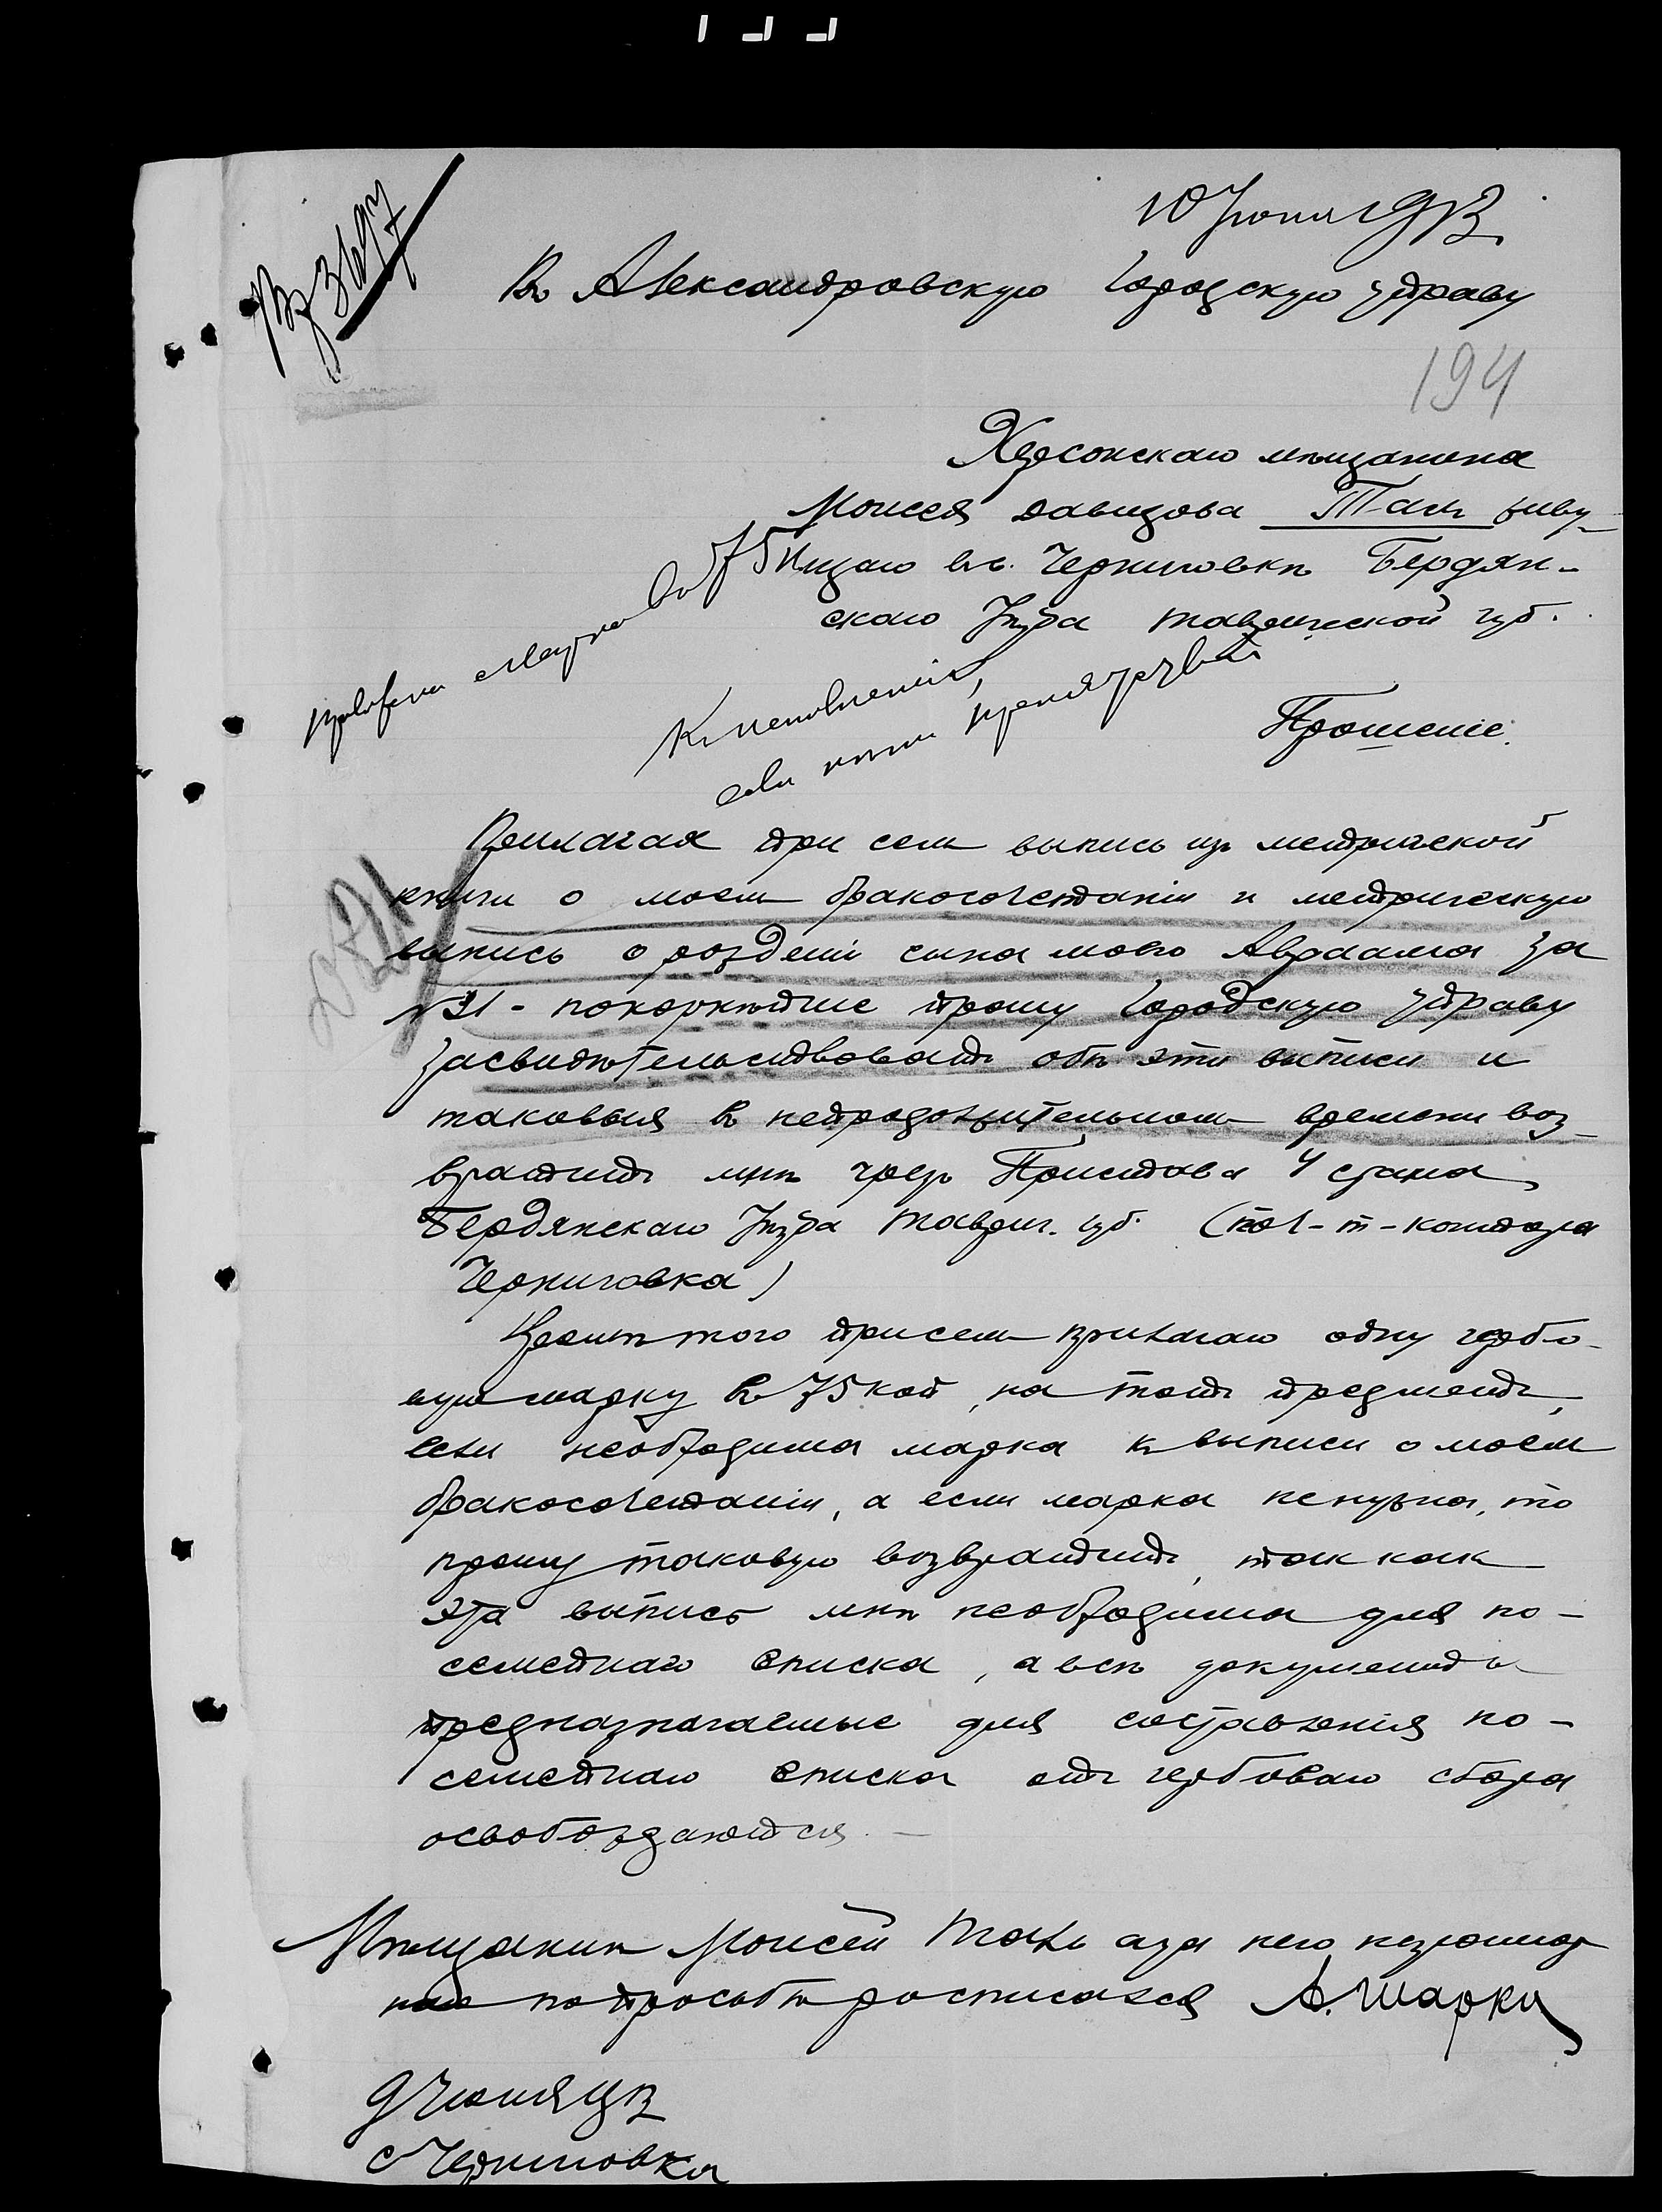 10 Июня 1913
Въ Александровскую Городскую управу
194
Херсонскаго мѣщанина
Моисея Давидова Таль живу-
щаго въ с. Черниговкѣ Бердян-
скаго Уѣзда Таврической губ.
приложена марка въ 75 к
Къ исполненію,
если нѣтъ препятствій
Прошеніе.
Прилагая при сем выпись изъ метрической
книги о моем бракосочетаніи и метрическую
выпись о рожденіи сына моего Авраама за
№31 - покорнѣйше прошу Городскую Управу
засвидѣтельствовать обѣ эти выписи и
таковыя въ непродолжительном времени воз-
вратить мнѣ чрезъ Пристава 4 стана
Бердянскаго Уѣзда Таврич. губ. (поч-т-контора
Черниговка)
Кромѣ того при сем прилагаю одну гербо-
вую марку въ 75 коп, на тотъ предметъ,
если необходима марка къ выписи о моем
бракосочетаніи, а если марка ненужна, то
прошу таковую возвратить, так как
эта выпись мнѣ необходима для по-
семейнаго списка, а всѣ документы
предназначаемые для составленія по-
семейнаго списка отъ гербоваго сбора
освобождаются. —
Мѣщанинъ Моисей Таль а за него неграмот
наго по просьбѣ росписался А. Шарки
9 Июня 1913
с Черниговка